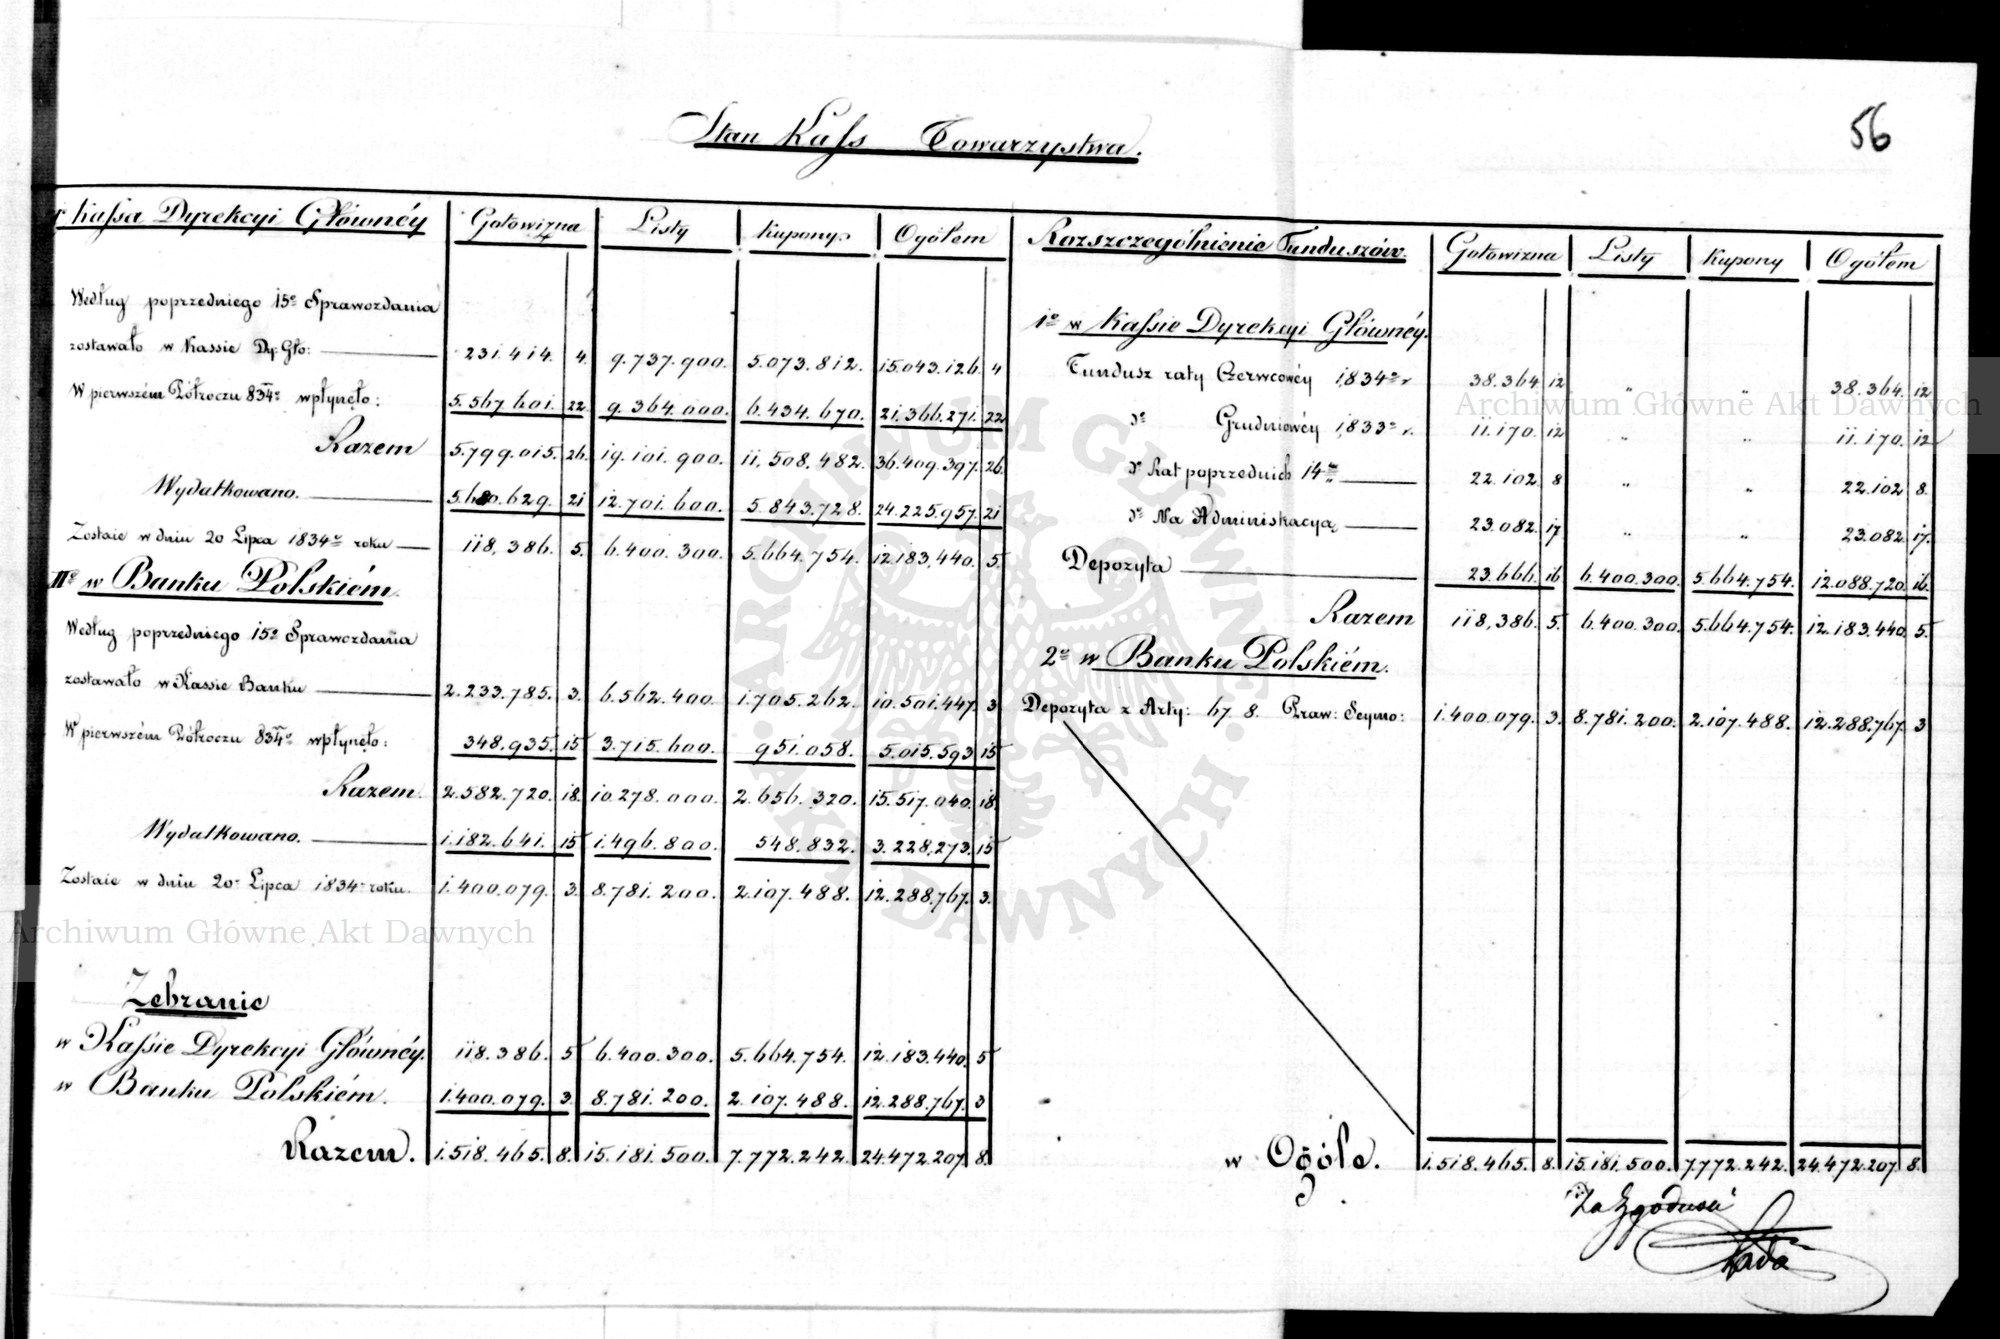 56
Stan Kass Towarzystwa.
Kassa Dyrekcyi Głównéy | Gotowizna | Listy | Kupony | Ogółem
Według poprzedniego 15o Sprawozdania
zostawało w Kassie Dy: Gło: | 231.414. 4. | 9.737.900. | 5.073.812. | 15.043.126 4
W pierwszém Półroczu 834o wpłynęło: | 5.567.601. 22 | 9.364.000. | 6.434.670. | 21.366.271. 22
Razem | 5.799.015. 26. | 19.101.900. | 11,508,482. | 36.409.397. 26.
Wydatkowano. | 5.680.629. 21 | 12.701.600. | 5.843.728. | 24.225.957. 21
Zostaie w dniu 20 Lipca 1834o roku | 118,386. 5. | 6.400.300. | 5.664.754. | 12.183,440. 5.
IIo w Banku Polskiém.
Według poprzedniego 15o Sprawozdania
zostawało w Kassie Banku | 2.233.785. 3. | 6.562.400. | 1.705.262. | 10.501.447. 3
W pierwszém Półroczu 834o wpłynęło: | 348.935. 15 | 3.715.600. | 951.058. | 5.015.593 15
Razem. | 2.582.720. 18. | 10.278.000. | 2.656.320. | 15.517.040. 18.
Wydatkowano. | 1.182.641. 15 | 1.496.800. | 548.832. | 3.228,273. 15
Zostaie w dniu 20o Lipca 1834o roku. | 1.400.079. 3. | 8.781.200. | 2.107.488. | 12.288,767. 3.
Zebranie
w Kassie Dyrekcyi Głównéy. | 118.386. 5 | 6.400.300. | 5.664.754. | 12.183.440. 5
w Banku Polskiém. | 1.400.079. 3 | 8.781.200. | 2.107.488. | 12.288.767. 3
Razem. | 1.518.465. 8. | 15.181.500. | 7.772.242. | 24.472.207 8
Rozszczególnienie Funduszów. | Gotowizna | Listy | Kupony | Ogółem
1o w Kassie Dyrekcyi Głównéy.
Fundusz raty Czerwcowéy 1834o r. | 38.364 12 | " | " | 38.364. 12
do Grudniowéy 1833o r. | 11.170. 12 | " | " | 11.170. 12
do Rat poprzednich 14tu | 22.102 8 | " | " | 22.102 8.
do Na Administracyą | 23.082. 17 | " | " | 23.082. 17.
Depozyta | 23.666. 16 | 6.400.300. | 5.664.754. | 12.088.720. 16.
Razem | 118,386. 5. | 6.400.300. | 5.664.754. | 12.183.440. 5.
2o w Banku Polskiém.
Depozyta z Arty: 67 8. Praw: Seymo: | 1.400.079. 3. | 8.781.200. | 2.107.488. | 12.288.767. 3
w Ogóle. | 1.518.465. 8. | 15.181.500. | 7.772.242. | 24.472.207. 8.
Za Zgodność
Archiwum Główne Akt Dawnych
Archiwum Główne Akt Dawnych
ARCHIWUM GŁÓWNE
AKT DAWNYCH